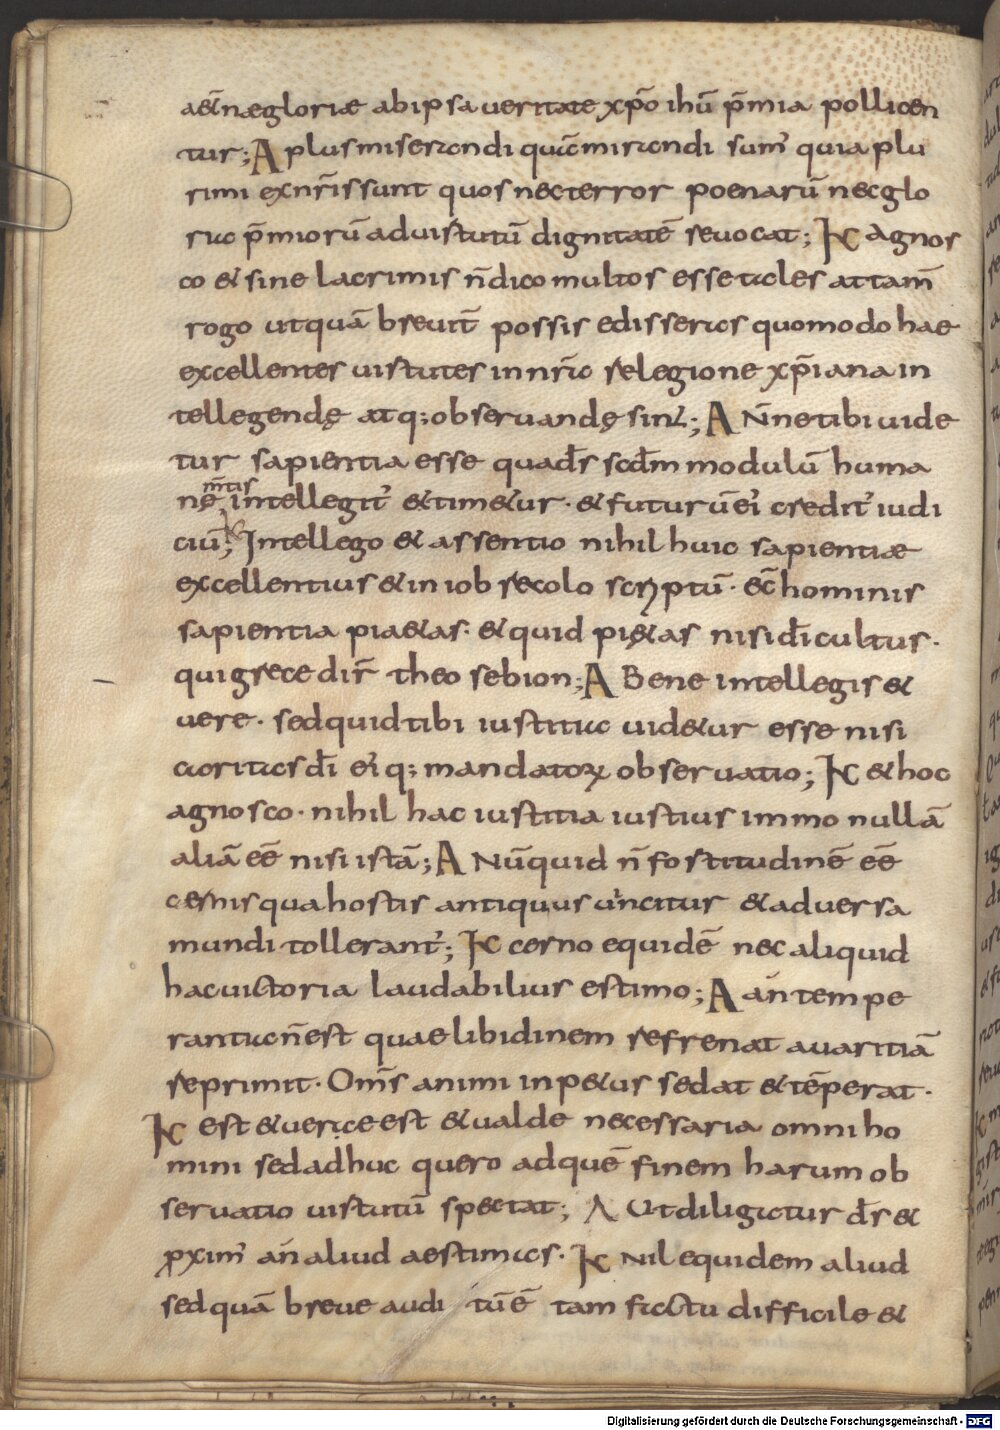 aet̄næ gloriæ ab ipsa veritate xp̄o ihū p̄mia pollicen
tur; A plus miserandi quā mirandi sum̉ quia plu
rimi ex nr̄is sunt quos nec terror poenarū nec glo
ria p̄miorū ad uirtutū dignitatē reuocat; K Agnos
co et sine lacrimis n̄ dico multos esse tales attam̄
rogo ut quā breuit̄ possis edisseras quomodo hae
excellentes uirtutes in nr̄a relegione xp̄iana in
tellegendę atq; obseruandę sint; A Ńne tibi uide
tur sapientia esse qua d̄s scd̄m modulū huma
nę m̄tis intellegit̉ et timetur · et futurū eỉ credit̉ iudi
ciū; K Intellego et assentio nihil huic sapientiæ
excellentius et in iob recolo scryptū · ec̄ hominis
sapientia pietas · et quid pietas nisi d̄i cultus ·
qui grece dir̄ theosebion; A Bene intellegis et
uere · sed quid tibi iustitia uidetur esse nisi
caritas d̄i eỉq; mandatoꝝ obseruatio; K et hoc
agnosco · nihil hac iustitia iustius immo nullā
aliā eē nisi istā; A Nūquid n̄ fortitudinē eē
cernis qua hostis antiquus uincitur et aduersa
mundi tollerant̉; K cerno equidē nec aliquid
hac uictoria laudabilius estimo; A an̄ tempe
rantia n̄ est quae libidinem refrenat auaritiā
reprimit · Om̄s animi inpetus sedat et tēperat ·
K est et uerace est et ualde necessaria omni ho
mini sed adhuc quero ad quē finem harum ob
seruatio uirtutū spectat; A Ut diligatur d̄s et
ꝓxim̉ an̄ aliud aestimas · K Nil equidem aliud
sed quā breue audi tū ē tam factu difficile et
Digitalisierung gefördert durch die Deutsche Forschungsgemeinschaft - DFG